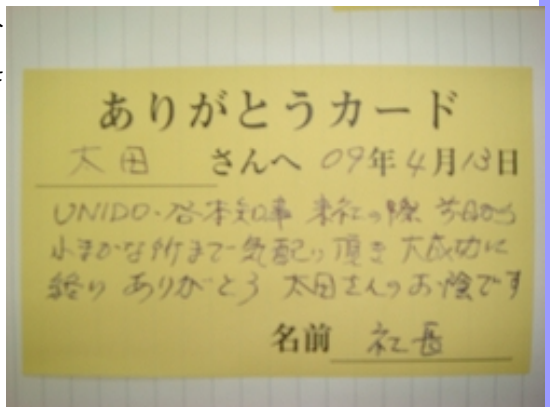 ありがとうカード
太田 さんへ 09年4月13日
UNIDO・谷本知事 来社の際 前日から
小まかな所まで気配り頂き 大成功に
終り ありがとう 太田さんのお陰です
名前 社長